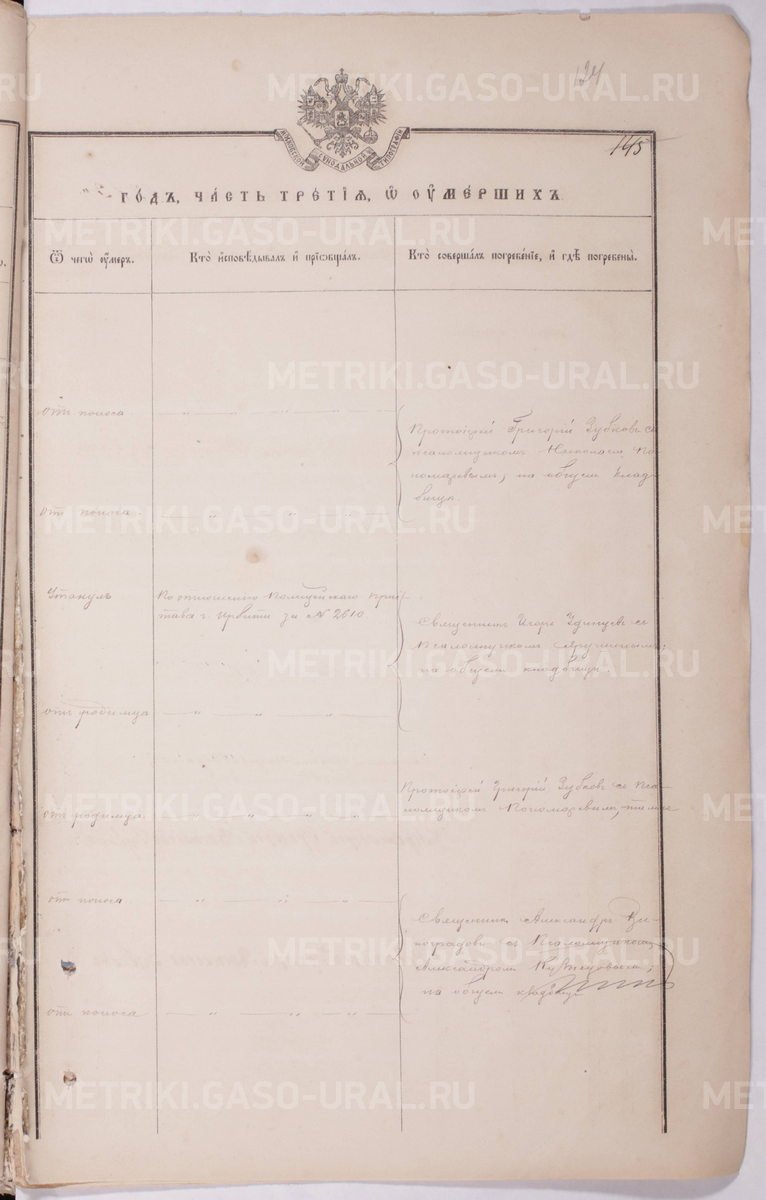 124
145
МОСКОВСКОЙ СѴНОДАЛЬНОЙ ТИПОГРАФІИ
го́дъ, ча́сть тре́тїѧ, ѡ҆ ᲂу҆ме́ршихъ.
Ѿ чегѡ̀ ᲂу҆́меръ.
Кто̀ и҆сповѣ́дывалъ и҆ прїѻбща́лъ.
Кто̀ соверша́лъ погребе́нїе, и҆ гдѣ̀ погребены̀.
отъ поноса
Протоіерей Григорій Зубковъ съ
псаломщикомъ Николаемъ По
номаревымъ, на общемъ клад
бищѣ.
отъ поноса
Утонулъ
По отношенію Полицейскаго При
става г. Ирбити за № 2610
Священникъ Удинцевъ съ
Псаломщикомъ
на общемъ кладбищѣ
отъ родимца
отъ родимца
Протоіерей Григорій Зубковъ съ Пса
ломщикомъ Пономаревымъ, тамже
отъ поноса
Священникъ Александръ Ви
ноградовъ съ Псаломщикомъ
Александромъ
на общемъ кладбищѣ
отъ поноса
METRIKI.GASO-URAL.RU